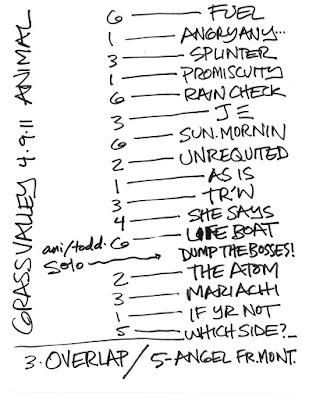 GRASS VALLEY 4.9.11 ANIMAL
6 — FUEL
1 — ANGRY ANY...
3 — SPLINTER
1 — PROMISCUITY
6 — RAIN CHECK
3 — J E
6 — SUN. MORNIN
2 — UNREQUITED
1 — AS IS
3 — TR'W
4 — SHE SAYS
ani/todd. 6 — LIFE BOAT
Solo → DUMP THE BOSSES!
2 — THE ATOM
3 — MARIACHI
1 — IF YR NOT
5 — WHICH SIDE?
3. OVERLAP / 5-ANGEL FR. MONT.